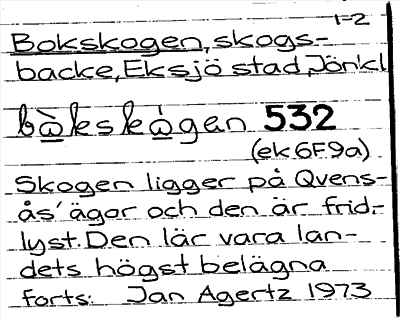 1-2
Bokskogen, skogs-
backe, Eksjö stad, Jönk.l
bò̱kskò̱gen 532
(ek 6F9a)
Skogen ligger på Qvens-
ås' ägor och den är frid-
lyst. Den lär vara lan-
dets högst belägna
forts: Jan Agertz 1973